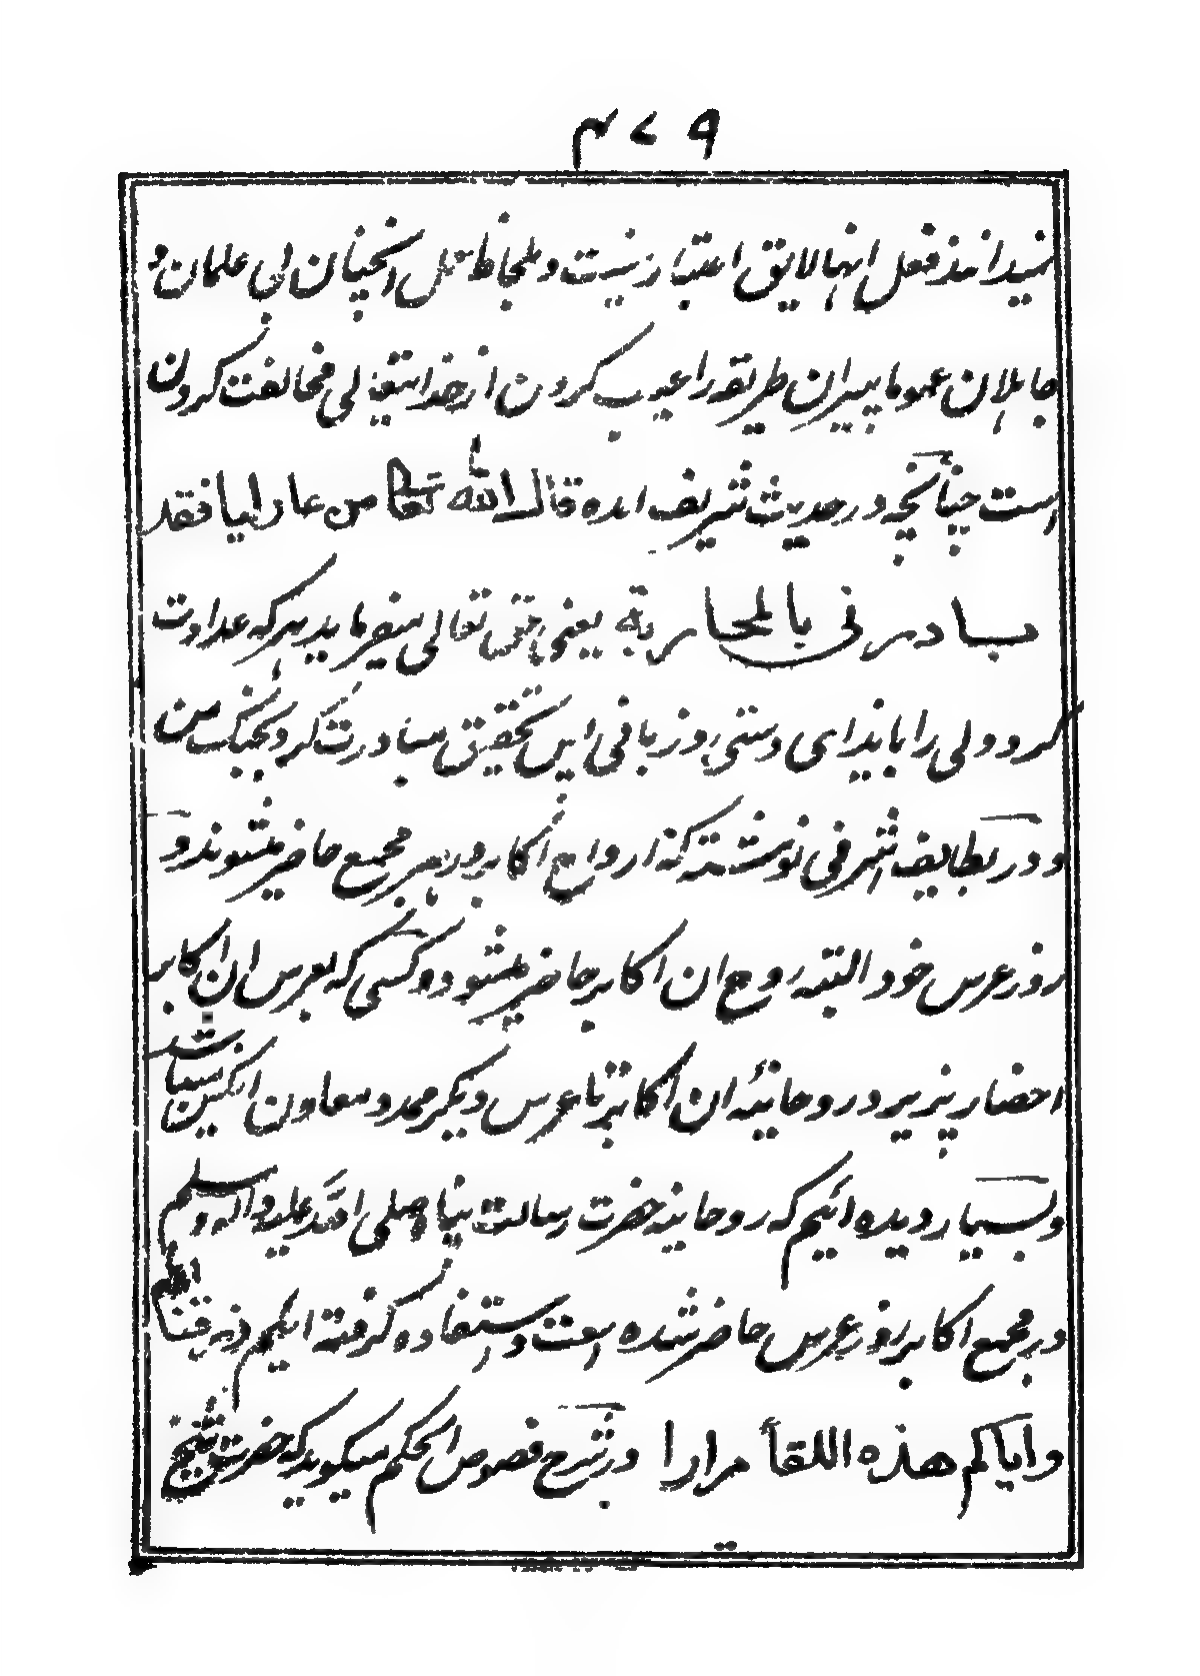 ۴۷۹
نمیدانند فعل انها لایق اعتبار نیست و بلحاظ عمل انچنان بی علمان و
جاهلان عموما پیران طریقه را عیوب کردن از خدایتعالی مخالفت کردن
است چنانچه در حدیث شریف امده قال الله تعالی من عاد لیا فقد
بادرنی بالمحاربة یعنی حق تعالی میفرماید هرکه عداوت
کرد ولی را بایذای و سنی روز باقی این تحقیق مبادرت کرد بجنگ من
و در لطایف اشرفی نوشته که ارواح اکابر در هر مجمع حاضر میشوند و
روز عرس خود البته روح ان اکابر حاضر میشود و کسی که بعرس ان اکابر
احضار پزیرد روحانیهٔ ان اکابر تا عرس دیگر ممد و معاون انکس میباشد
و بسیار دیده ائیم که روحانیه حضرت رسالت پناه صلی الله علیه واله وسلم
در مجمع اکابر روز عرس حاضر شده است و استفاده گرفته ایم رزقنا الله
وایاکم هذه اللقأ مرارا در شرح فصوص الحکم میگوید که حضرت شیخ